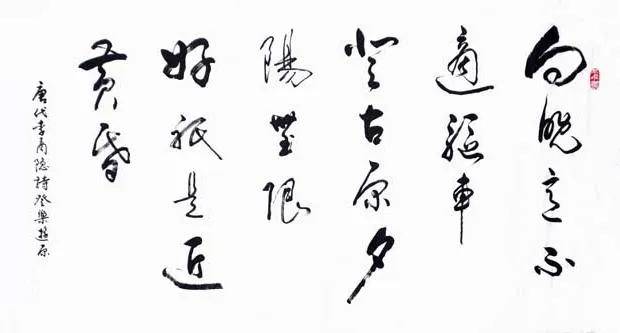 向晚意不
適驅車
登古原夕
陽無限
好祇是近
黄昏
唐代李商隐詩登樂遊原